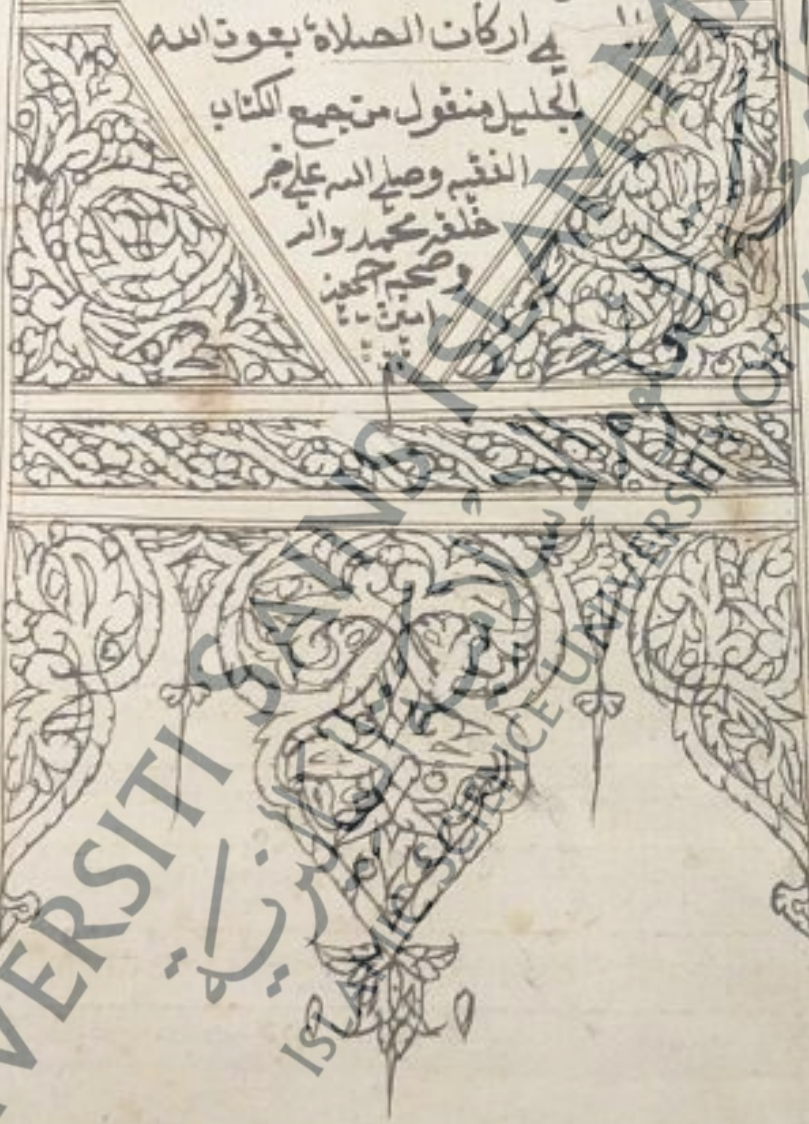 في اركان الصلاة بعون الله
الجليل منقول من جمع الكتاب
الفقيه وصلي الله علي خير
خلقه محمد واله
وصحبه اجمعين
امين
UNIVERSITI SAINS ISLAM MA
ISLAMIC SCIENCE UNIVERSITY OF M